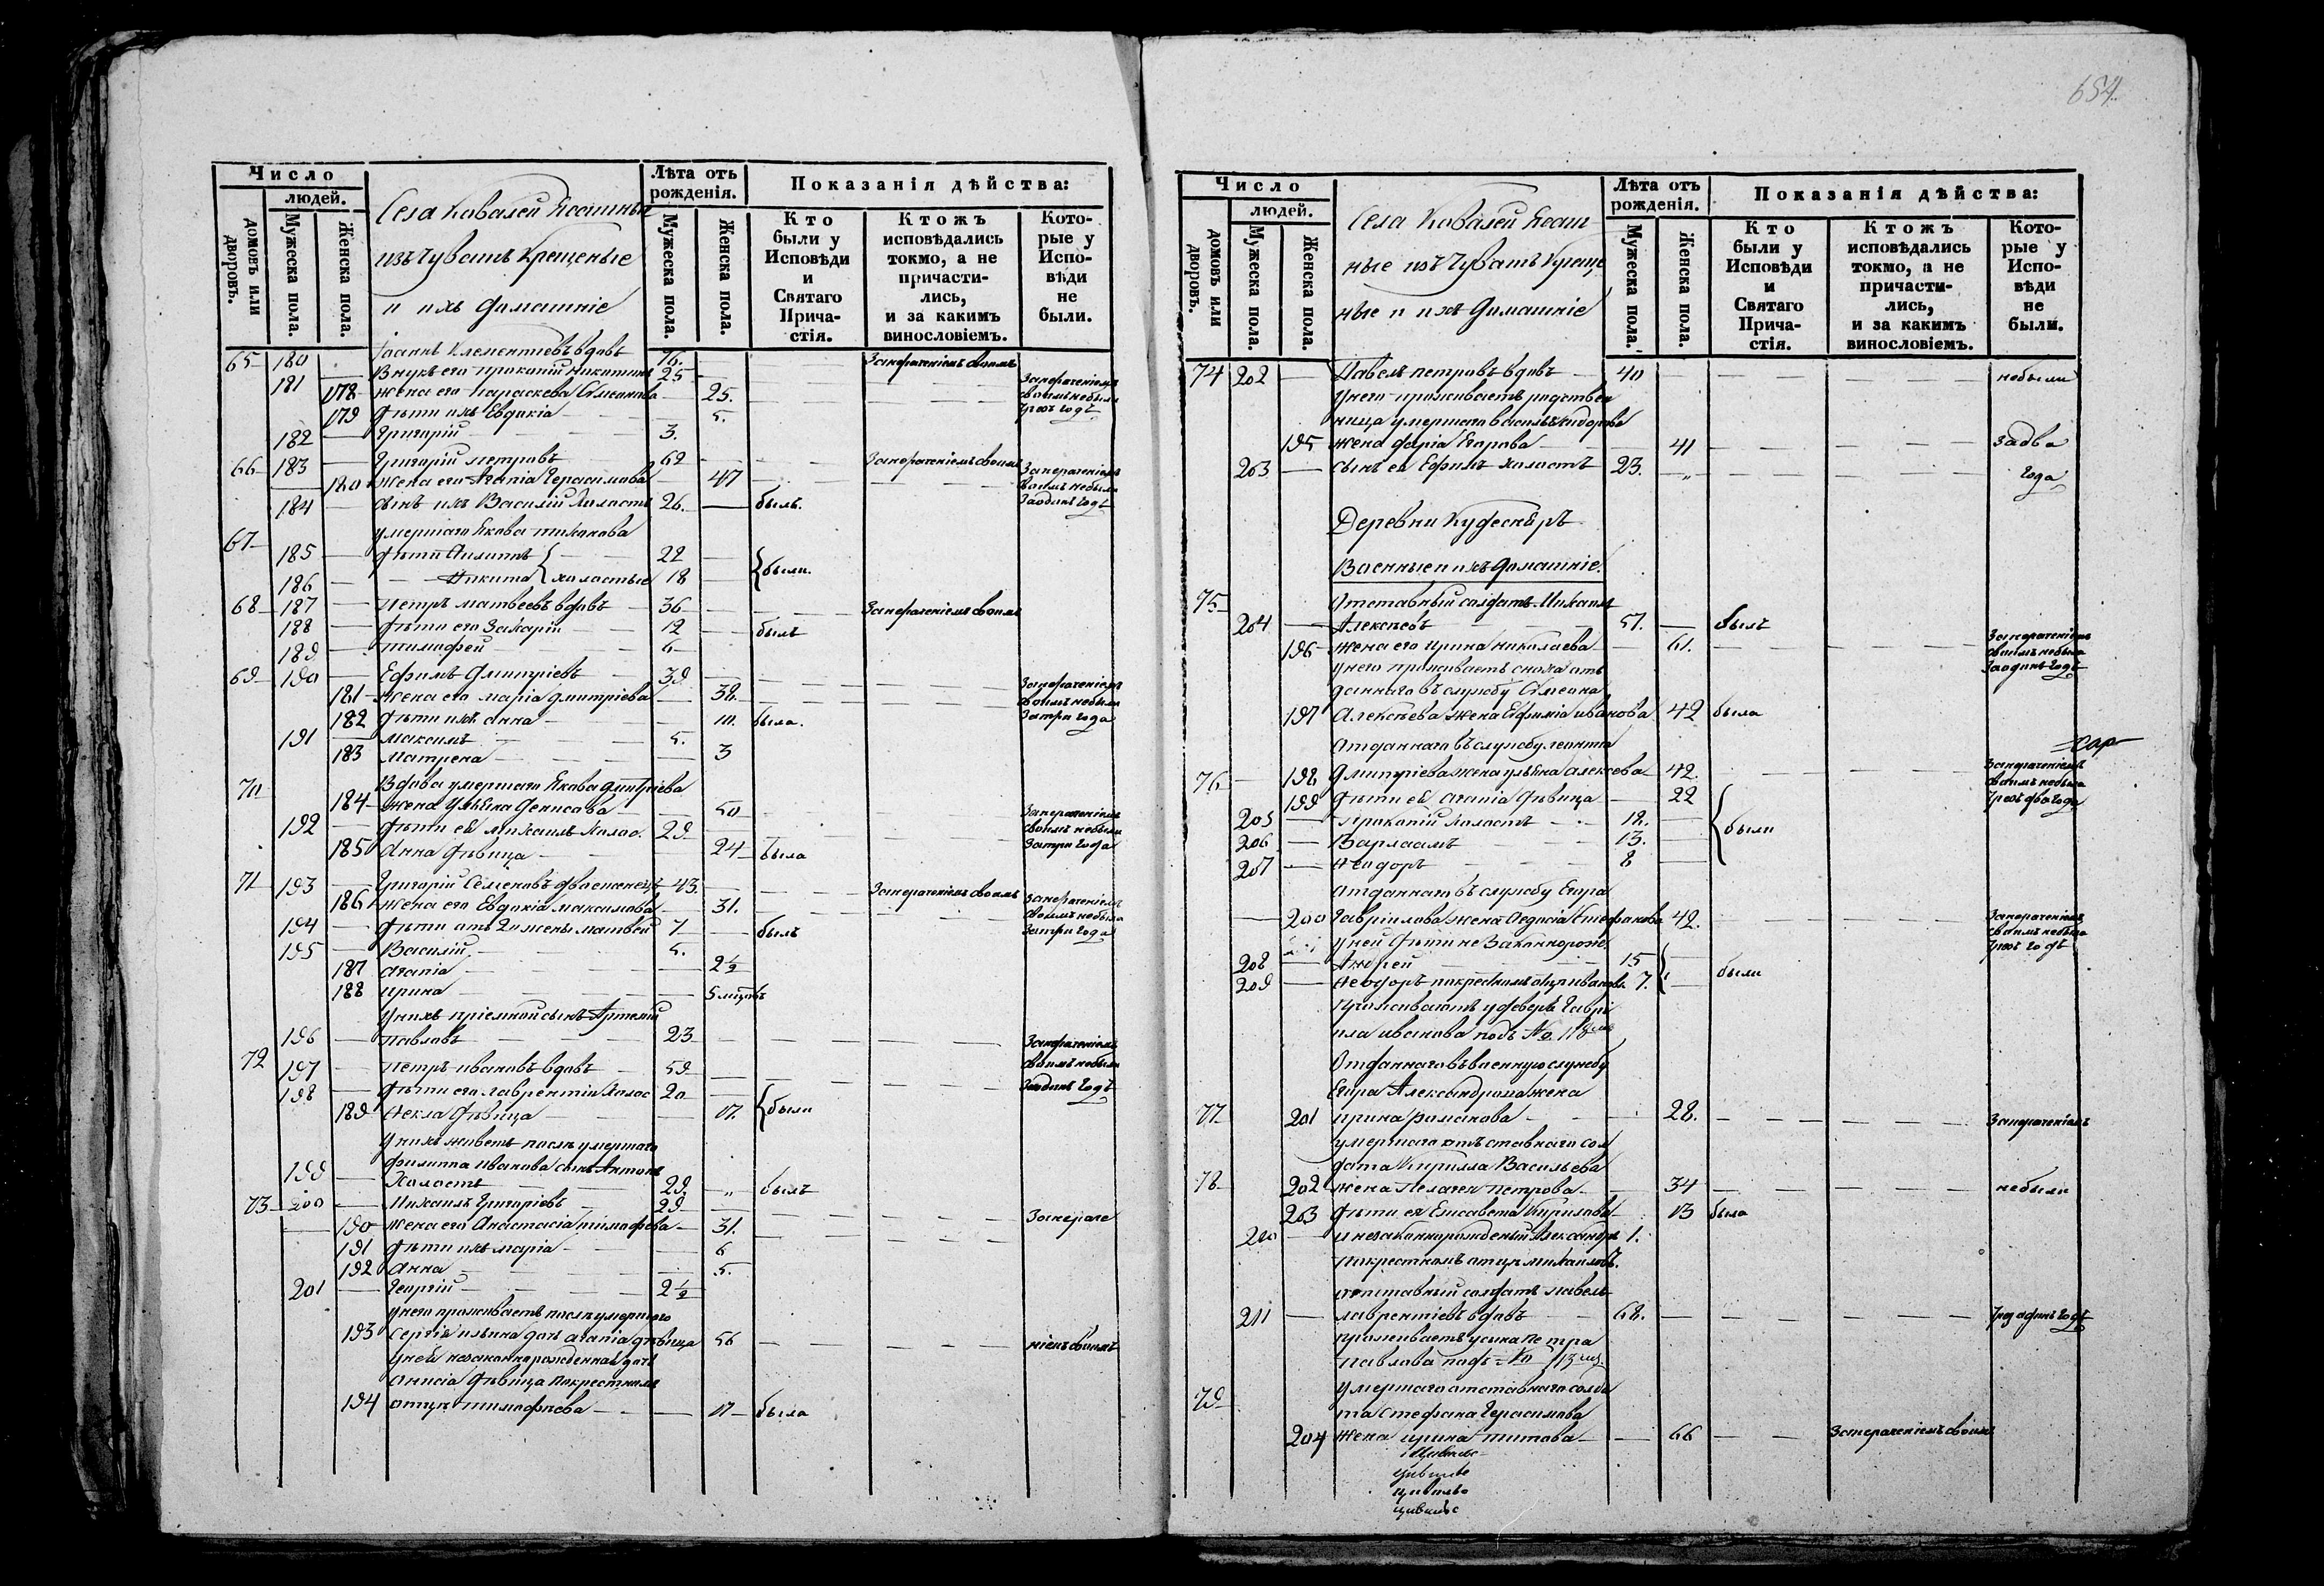 654.
Число
людей.
домовъ или дворовъ.
Мужеска пола.
Женска пола.
Села Ковалей Ясашныя
изъ Чувашъ Крещеные
и ихъ домашніе
Лѣта отъ рожденія.
Мужеска пола.
Женска пола.
Показанія дѣйства:
Кто были у Исповѣди и Святаго Прича-стія.
Ктожъ исповѣдались токмо, а не причасти-лись, и за какимъ винословіемъ.
Кото-рые у Испо-вѣди не были.
65 180 Іоаннъ Клементіевъ вдовъ 76. Занераченіемъ своимъ
181 Внукъ его Прокопій Никитинъ 25
178 жена его Параскева Симеонова 25. Занераченіемъ своимъ небыли
179 дѣти ихъ Евдокія 5.
182 Григорій 3.
66 183 Григорій Петровъ 62 Занераченіемъ своимъ
180 жена его Агапія Герасимова 47 Занераченіемъ своимъ небыла Заодинъ годъ
184 сынъ ихъ Василій Холостъ 26. былъ.
67 умершаго Якова
185 дѣти Филиппъ 22
186 Никита холостые 18 были.
68 187 Петръ Матвеевъ вдовъ 36 Занераченіемъ своимъ
188 дѣти его Захарій 12 былъ
189 Тимофей 6
69 190 Ефимъ Дмитріевъ 39
181 жена его Марія Дмитріева 38. Занераченіемъ своимъ небыли Затри года
182 дѣти ихъ Анна 10. была.
191 Максимъ 5.
183 Матрена 3
70 Вдова умершаго Якова Дмитріева
184 жена Ульяна Денисова 50 Занераченіемъ своимъ небыли Затри года
192 дѣти ея Михаилъ Холос. 29.
185 Анна дѣвица 24 была
71 193 Григорій Семеновъ двоеженецъ 43. Занераченіемъ своимъ
186 жена его Евдокія Максимова 31. Занераченіемъ своимъ небыла Затри года
194 дѣти отъ 2й жены Матвей 7 былъ
195 Василій 5.
187 Агапія 2½
188 Ирина 5 мцовъ
У нихъ пріемной сынъ Артемій
196 Павловъ 23
72 197 Петръ Ивановъ вдовъ 59 Занераченіемъ своимъ небыли Заодинъ годъ
198 дѣти его Лаврентій Холос 20
189 Фекла дѣвица 17. были
У нихъ живетъ послѣ умершаго
Филиппа Иванова сынъ Антонъ
199 Холостъ 29. былъ
73 200 Михаилъ Григоріевъ 29
190 жена его Анастасія Тимофѣева 31. Занераче
191 дѣти ихъ Марія 6
192 Анна 5.
201 Георгій 2½
У него проживаетъ послѣ умершаго
193 Сергія Ильина дочь Агапія дѣвица 56 ніемъ своимъ
У ней незаконнорожденная дочь
Анисія дѣвица По крестномъ
194 отцѣ Тимофѣева 17 была
Число
людей.
домовъ или дворовъ.
Мужеска пола.
Женска пола.
Села Ковалей Ясаш
ные изъ Чувашъ Креще
ные и ихъ домашніе
Лѣта отъ рожденія.
Мужеска пола.
Женска пола.
Показанія дѣйства:
Кто были у Исповѣди и Святаго Прича-стія.
Ктожъ исповѣдались токмо, а не причасти-лись, и за какимъ винословіемъ.
Кото-рые у Испо-вѣди не были.
74 202 Павелъ Петровъ вдовъ 40 небыли
У него проживаетъ родствен
ница умершаго Василья Ѳедорова
195 жена Дарія Егорова 41 задва
203 сынъ ея Ефимъ холостъ 23. " года
Деревни Кудеснеръ
Военные и ихъ домашніе.
75 Отставный солдатъ Михаилъ
204 Алексѣевъ 57. былъ
196 жена его Ирина Николаева 61. Занераченіемъ своимъ небыла Заодинъ годъ
У него проживаетъ сноха от
даннаго въ службу Симеона
197 Алексѣева жена Евфимія Иванова 42 была
Отданнаго въ службу Леонтія
76 198 Дмитріева жена Ульяна Алексеева 42. Занераченіемъ своимъ небыла Чрезъ два года
199 дѣти ея Агапія дѣвица 22
205 Прокопій холостъ 18. были
206 Варлаамъ 13.
207 Ѳеодоръ 8
Отданнаго въ службу Егора
200 Гавріилова жена Ѳедосія Стефанова 42. Занераченіемъ своимъ небыла Чрезъ годъ
У ней дѣти незаконнорожде
208 Андрей 15
209 Ѳеодоръ по крестномъ отцѣ Ивановъ 7. были
Проживаютъ у деверя Гаври
ила Иванова подъ № 118мъ
Отданнаго въ военную службу
Егора Александрова жена
77 201 Ирина Романова 28. Занераченіемъ
умершаго отставнаго сол
дата Кирилла Васильева
78 202 жена Пелагея Петрова 34 небыли
203 дѣти ея Елисавета Кирилова 13 была
210 и незаконнорожденный Александръ 1.
по крестномъ отцѣ Михаиловъ.
Отставный солдатъ Павелъ
211 Лаврентіевъ вдовъ 68. Чрез один годъ
проживаетъ у сына Петра
Павлова подъ № 113мъ
79 Умершаго отставнаго солда
та Стефана Герасимова
204 жена Ирина Титова 66 Занераченіемъ своимъ